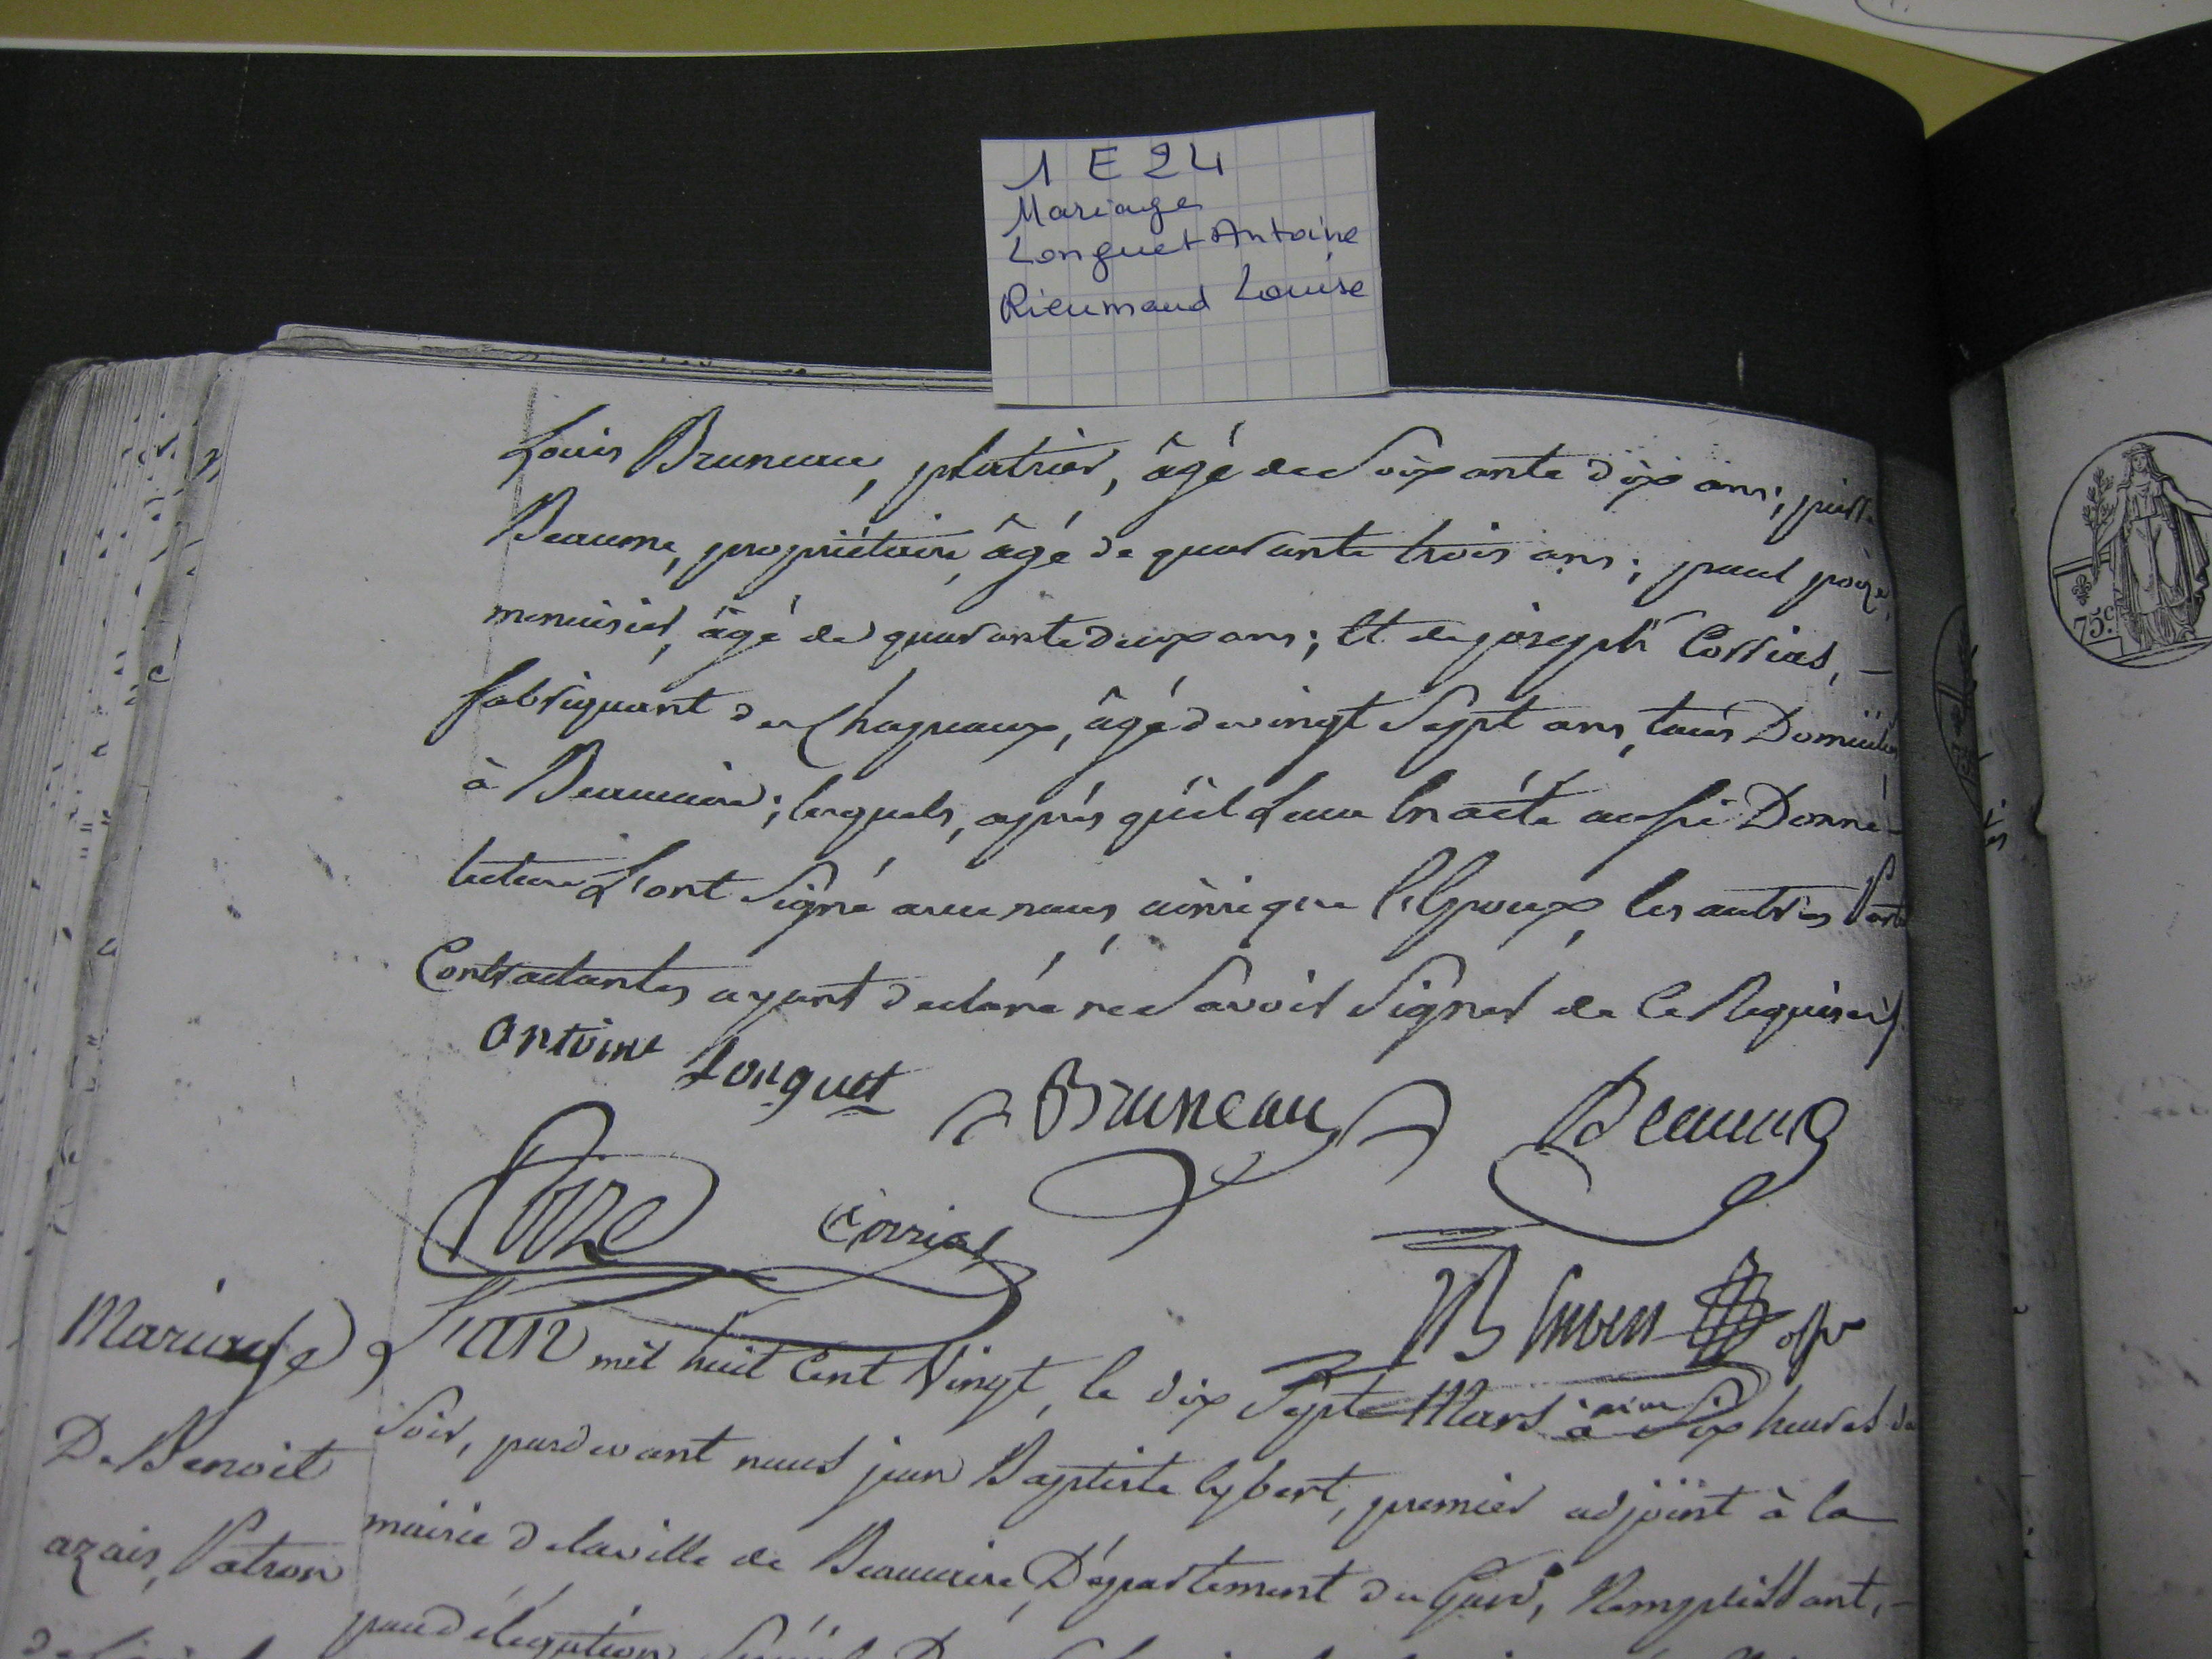 1 E 24
Mariage
Longuet Antoine
Rieumaud Louise
Louis Bruneau, platrier, âgé de Soixante dix ans;
Beaume, propriétaire, âgé de quarante trois ans; paul poize,
menuisier, âgé de quarante deux ans; Et de joseph Corrias,
fabriquant de Chapeaux, âgé de vingt Sept ans, tous Domiciliés
à Beaucaire; lesquels, après qu'il Leur En a été aussi Donné
lecture L'ont Signé avec nous, ainsi que l'Epoux, les autres
Contractantes ayant declaré ne Savoir Signer de Ce Requises
antoine Longuet
Bruneau
Beaume
Poize
Corrias
Mariage
L'an mil huit Cent Vingt, le dix Sept Mars à Six heures du
De Benoit
Soir, pardevant nous jean Baptiste Eybert, premier adjoint à la
azais, Patron
mairie de la ville de Beaucaire, Département du Gard, Remplissant,
par délégation
75c